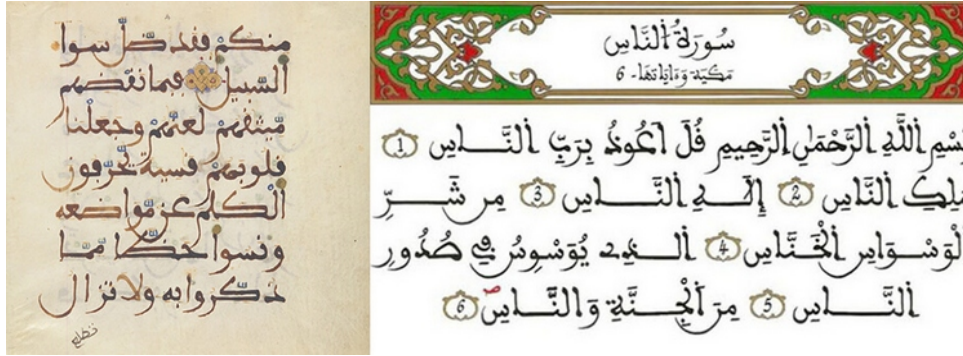 منكم فقد ضلّ سوا
السّبيل فبما نقضهم
ميثقهم لعنّهم وجعلنا
قلوبهم قسية يحرّفون
الكلم عن مّواضعه
ونسوا حظّا مّمّا
ذكّروا به ولا تزال
تطلع
سُورَةُ النَّاسِ
مَكِّيَّة وَءَايَاتُهَا - 6
بِسْمِ اللَّهِ الرَّحْمَٰنِ الرَّحِيمِ قُلَ اَعُوذُ بِرَبِّ النَّاسِ 1
مَلِكِ النَّاسِ 2 إِلَٰهِ النَّاسِ 3 مِن شَرِّ
الْوَسْوَاسِ الْخَنَّاسِ 4 الَّذِے يُوَسْوِسُ فِے صُدُورِ
النَّاسِ 5 مِنَ الْجِنَّةِ وَالنَّاسِ 6